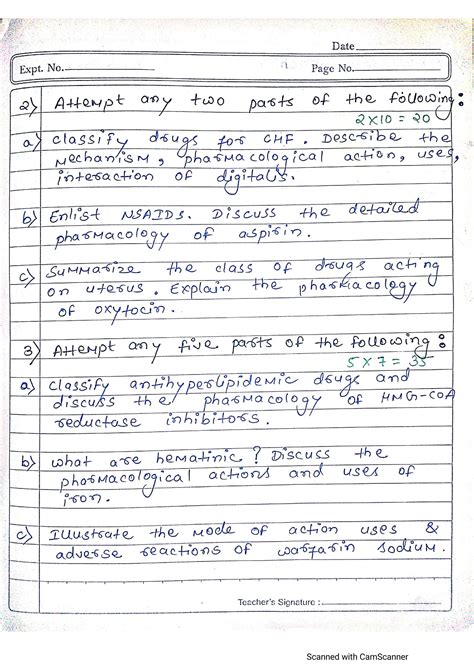 Date
Expt. No.
Page No.
2) Attempt any two parts of the following:
2x10 = 20
a) classify drugs for CHF. Describe the
Mechanism, pharmacological action, uses,
interaction of digitalis.
b) Enlist NSAIDS. Discuss the detailed
pharmacology of aspirin.
c) Summarize the class of drugs acting
on uterus. Explain the pharmacology
of oxytocin.
3) Attempt any five parts of the following:
5x7 = 35
a) classify antihyperlipidemic drugs and
discuss the pharmacology of HMG-COA
reductase inhibitors.
b) what are hematinic? Discuss the
pharmacological actions and uses of
iron.
c) Illustrate the Mode of action uses &
adverse reactions of warfarin sodium.
Teacher's Signature :
Scanned with CamScanner